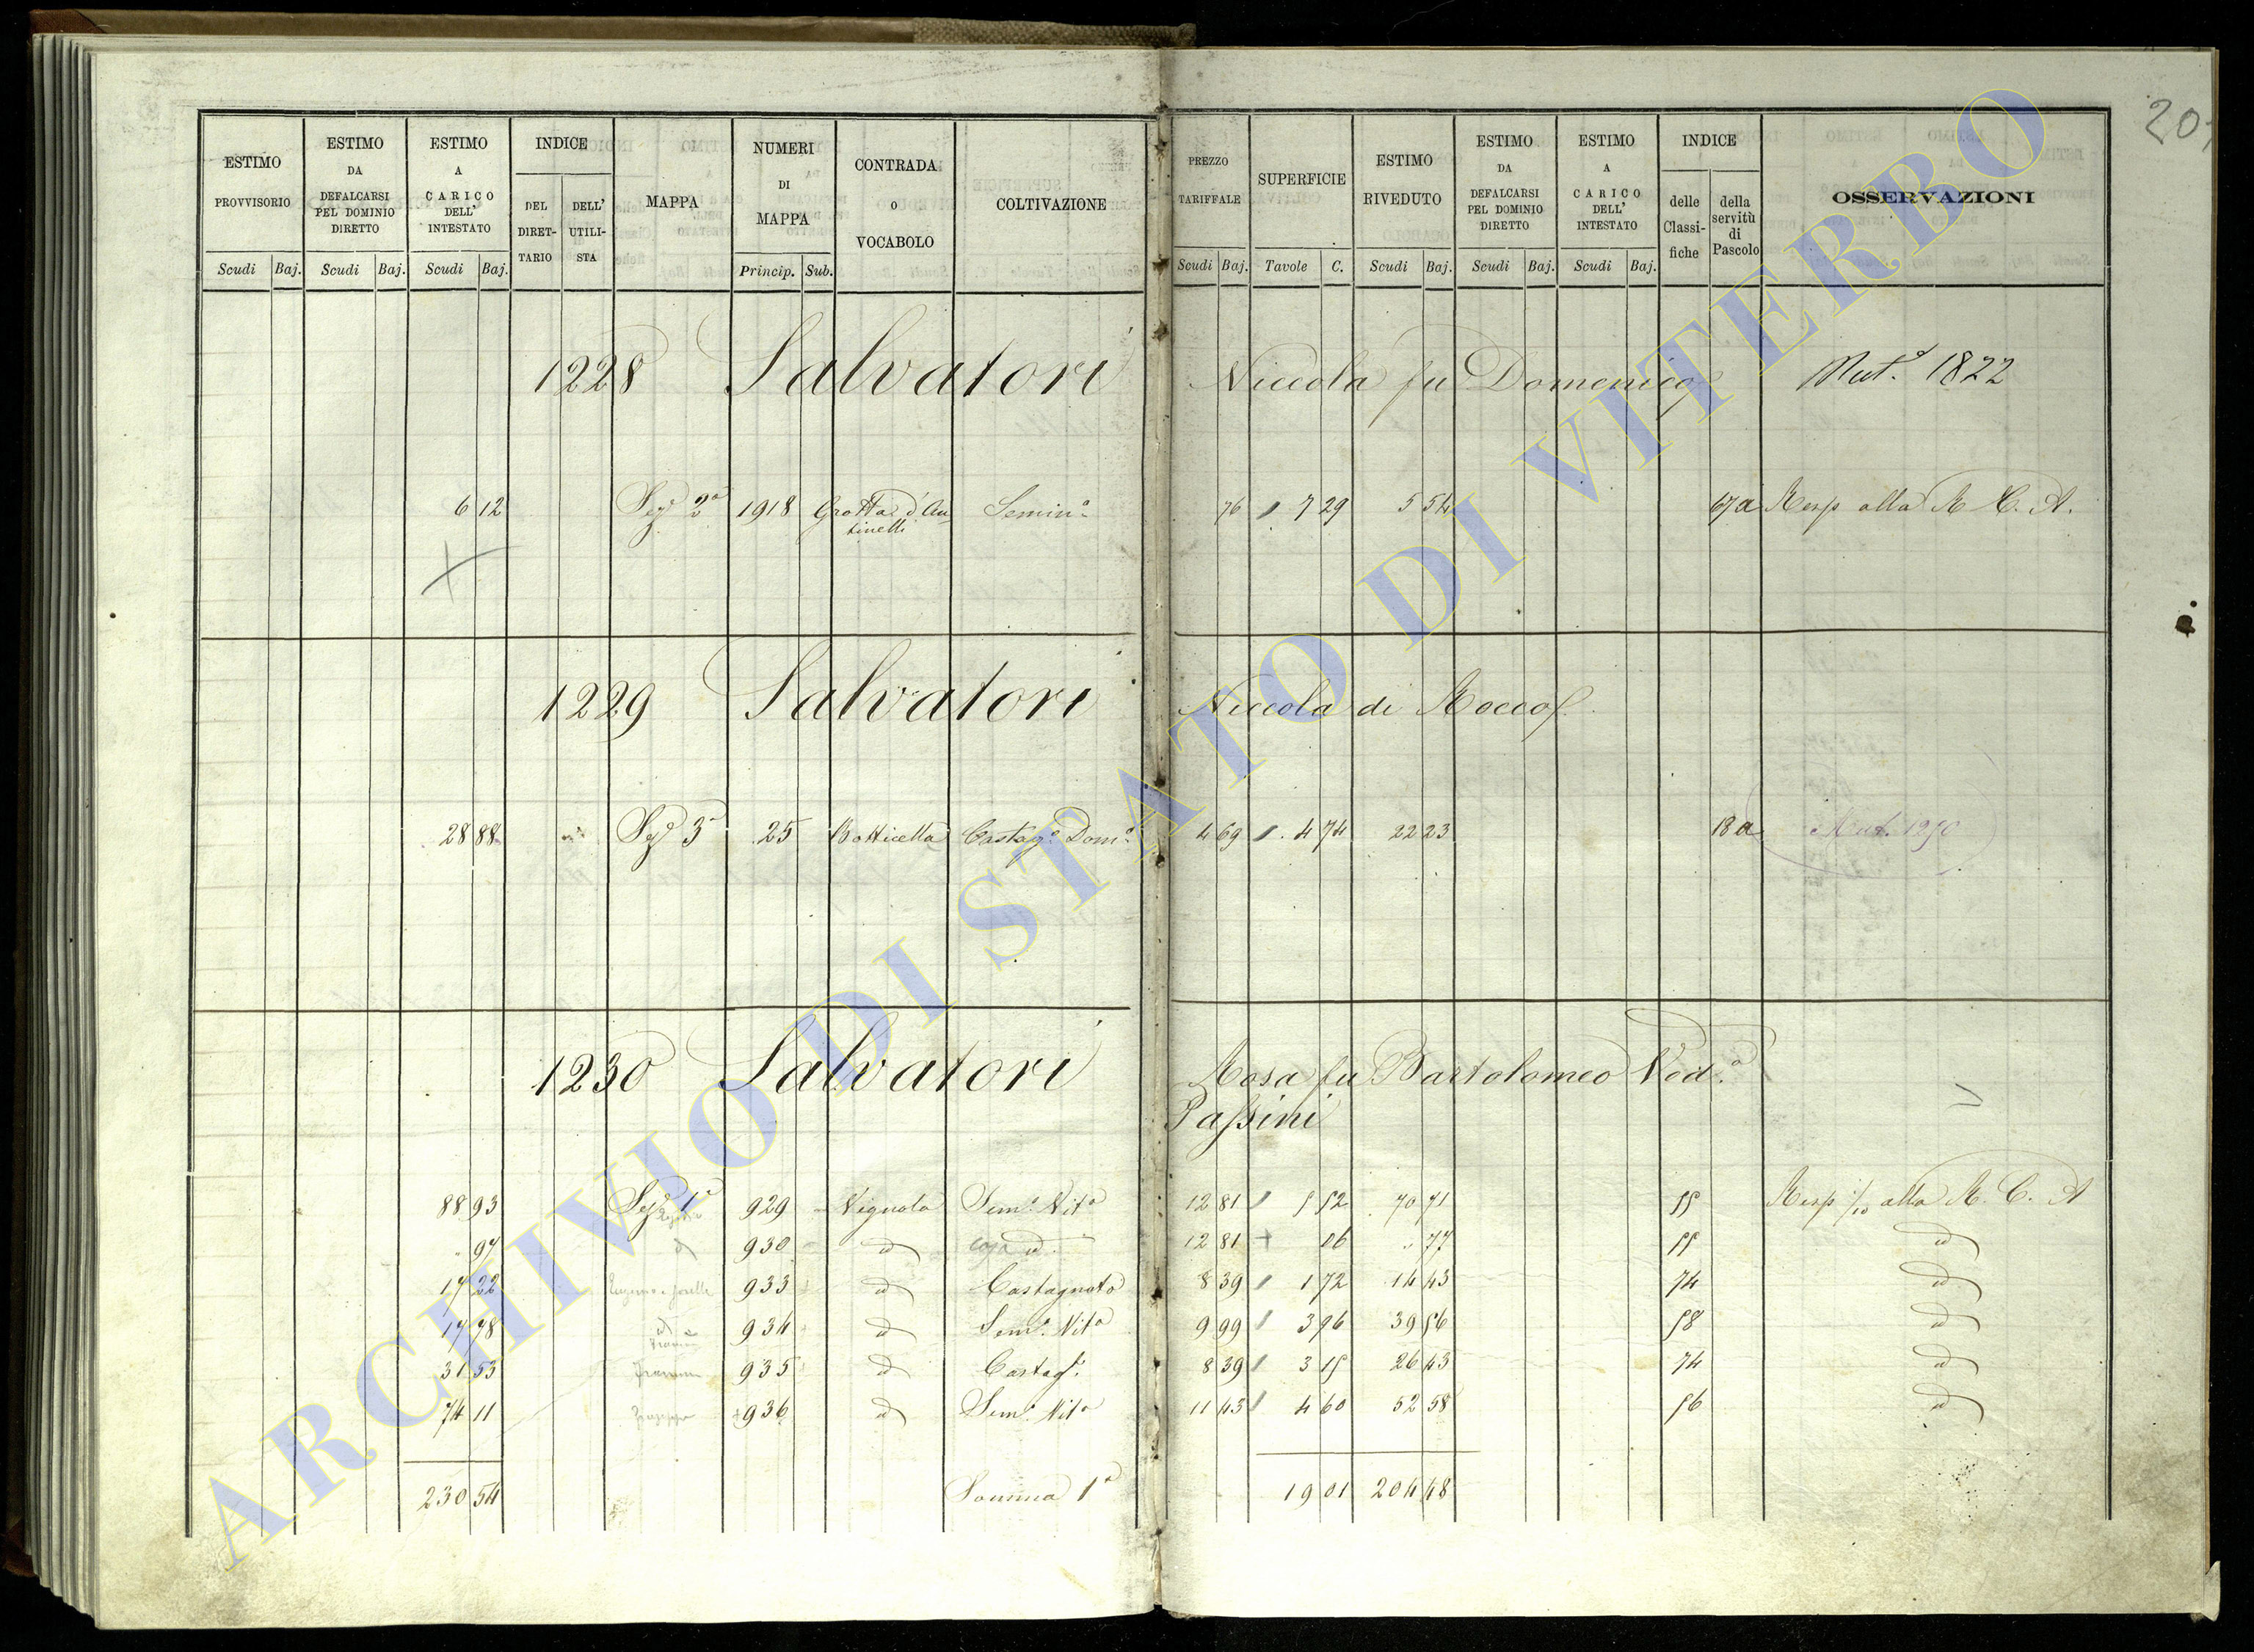 20
ESTIMO PROVVISORIO
ESTIMO DA DEFALCARSI PEL DOMINIO DIRETTO
ESTIMO A CARICO DELL' INTESTATO
INDICE
DEL DIRET-TARIO
DELL' UTILI-STA
MAPPA
NUMERI DI MAPPA
CONTRADA O VOCABOLO
COLTIVAZIONE
PREZZO TARIFFALE
SUPERFICIE
ESTIMO RIVEDUTO
ESTIMO DA DEFALCARSI PEL DOMINIO DIRETTO
ESTIMO A CARICO DELL' INTESTATO
INDICE
delle Classi-fiche
della servitù di Pascolo
OSSERVAZIONI
Scudi Baj. Scudi Baj. Scudi Baj. Princip. Sub. Scudi Baj. Tavole C. Scudi Baj. Scudi Baj. Scudi Baj.
1228 Salvatori Niccola fu Domenico Mut. 1822
6 12 Sez. 2a 1918 Grotta d'An Semin.o 76 7 29 5 54 67 a Resp alla R. C. A.
tinelli
1229 Salvatori Niccola di Rocco
28 88 Sez. 3a 25 Botticella Castag.o Dom.o 4 69 4 74 22 23 18 a
1230 Salvatori Rosa fu Bartolomeo Ved.a
Passini
88 93 Sez. 1a 929 Vignola Sem.o Vit.o 12 81 5 52 70 71 55 Resp 1/10 alla R. C. A
97 id 930 id id 12 81 06 77 55 id
17 22 933 id Castagneto 8 39 1 72 14 43 74 id
17 78 id 934 id Sem.o Vit.o 9 99 3 96 39 56 58 id
31 53 935 id Castag.o 8 39 3 15 26 43 74 id
74 11 936 id Sem.o Vit.o 11 43 4 60 52 58 56 id
230 54 Somma 1a 19 01 204 48
ARCHIVIO DI STATO DI VITERBO